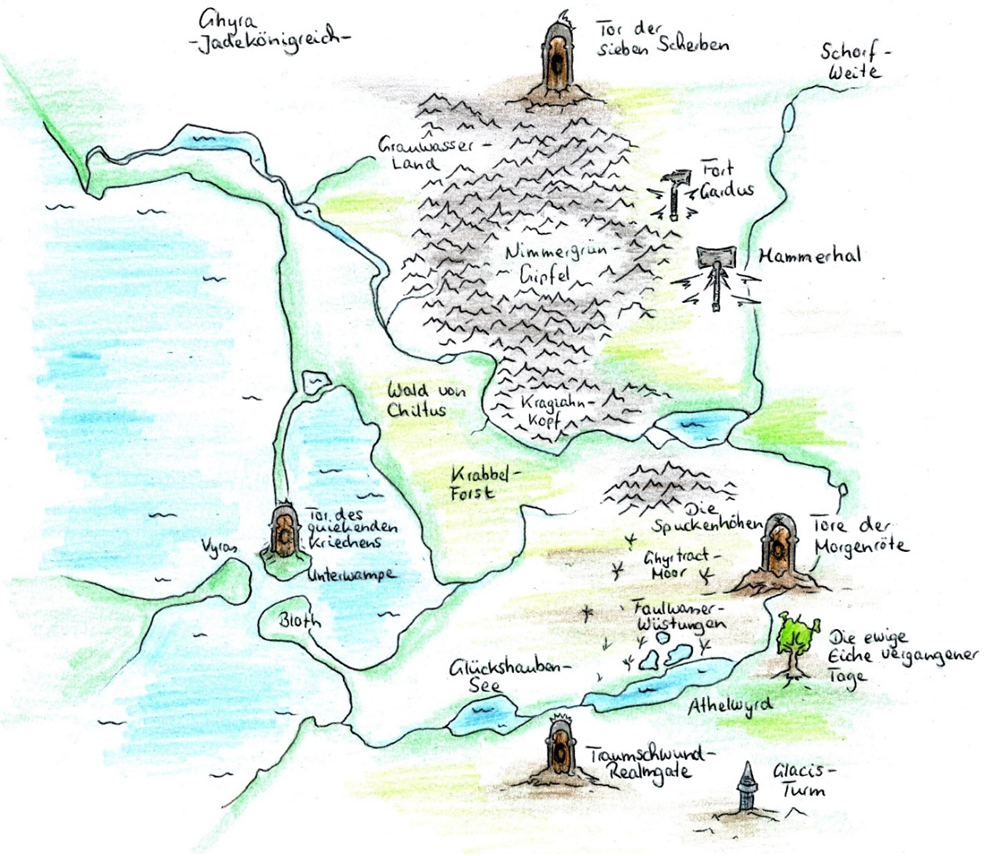 Ghyra
-Jadekönigreich-
Tor der
sieben Scherben
Schorf-
Weite
Grauwasser-
Land
Fort
Gardus
Nimmergrün
Gipfel
Hammerhal
Wald von
Chiltus
Kragzahn-
Kopf
Krabbel-
Forst
Die
Spuckenhöhen
Tor des
quiekenden
Kriechens
Tore der
Morgenröte
Vyras
Ghyrtract-
Moor
Unterwampe
Faulwasser-
Wüstungen
Bloth
Die ewige
Eiche vergangener
Tage
Glückshauben-
See
Athelwyrd
Traumschwund-
Realmgate
Glacis-
Turm